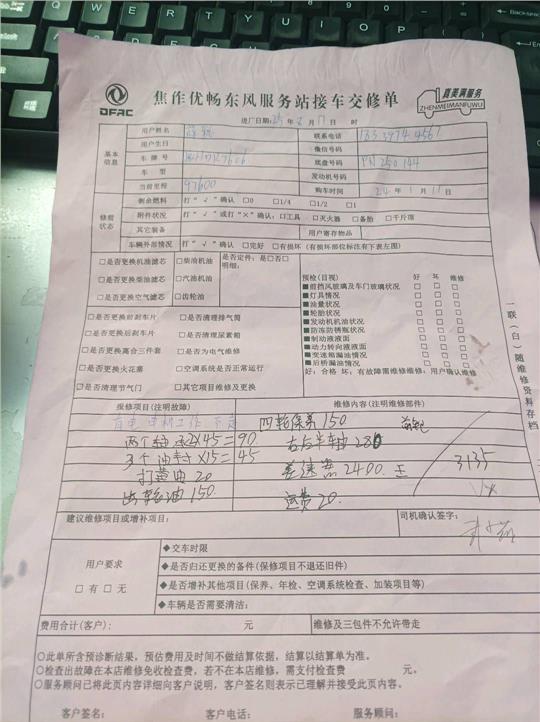 DFAC
焦作优畅东风服务站接车交修单
真美满服务
ZHENMEIMANFUWU
进厂日期: 25 年 月 17 日 时
基本信息
用户姓名 联系电话
用户生日 微信号码
车牌号 底盘号码 PN250144
车型 发动机号码
当前里程 97600 购车时间 24 年 1 月 11 日
修前状态
剩余燃料 打“√”确认 □0 □1/4 □1/2 □1
附件状况 打“√”或打“×”确认:□工具 □灭火器 □备胎 □千斤顶
其它装备 用户寄存物品
车辆外部情况 打“√”确认 □完好 □有损坏(有损部位标注有下表左图)
□是否更换机油滤芯 □柴油机油 是否定件:是□否□
明细:
□是否更换柴油滤芯 □汽油机油
□是否更换空气滤芯 □齿轮油
□是否更换前刹车片 □是否清理排气筒
□是否更换后刹车片 □是否清理尿素箱
□是否更换离合三件套 □是否为电气维修
□是否更换火花塞 □空调系统是否正常运行
□是否清理节气门 □其它项目维修及更换
预检(目视) 好 坏 维修
■前挡风玻璃及车门玻璃状况 □ □ □
■灯具情况 □ □ □
■油量状况 □ □ □
■轮胎状况 □ □ □
■发动机机油状况 □ □ □
■防冻防锈瓶状况 □ □ □
■制动液液面 □ □ □
■动力转向液液面 □ □ □
■变速箱漏油情况 □ □ □
■后桥漏油情况 □ □ □
好:合格 坏:有故障需维修维修:用户确认维修
一联(白)随维修资料存档
报修项目(注明故障) 维修内容(注明维修部件)
四轮保养 150
两个轴承2×45=90 右后半轴 280
3个油封×15=45 差速器 2400
打黄油 20 3135
齿轮油 150 运费20
建议维修项目或增补项目: 司机确认签字:
用户要求
□有 □无
◆交车时限
◆是否归还更换的备件(保修项目不退还旧件)
◆是否增补其他项目(保养、年检、空调系统检查、加装项目等)
◆车辆是否需要清洁:
费用合计(客户): 元 维修及三包件不允许带走
○此单所含预诊断结果,预估费用及时间不做结算依据,结算以结算单为准。
○检查出故障在本店维修免收检查费,若不在本店维修,需支付检查费 元。
○服务顾问已将此页内容详细向客户说明,客户签名则表示已理解并接受此页内容。
客户签名: 客户电话: 服务顾问: